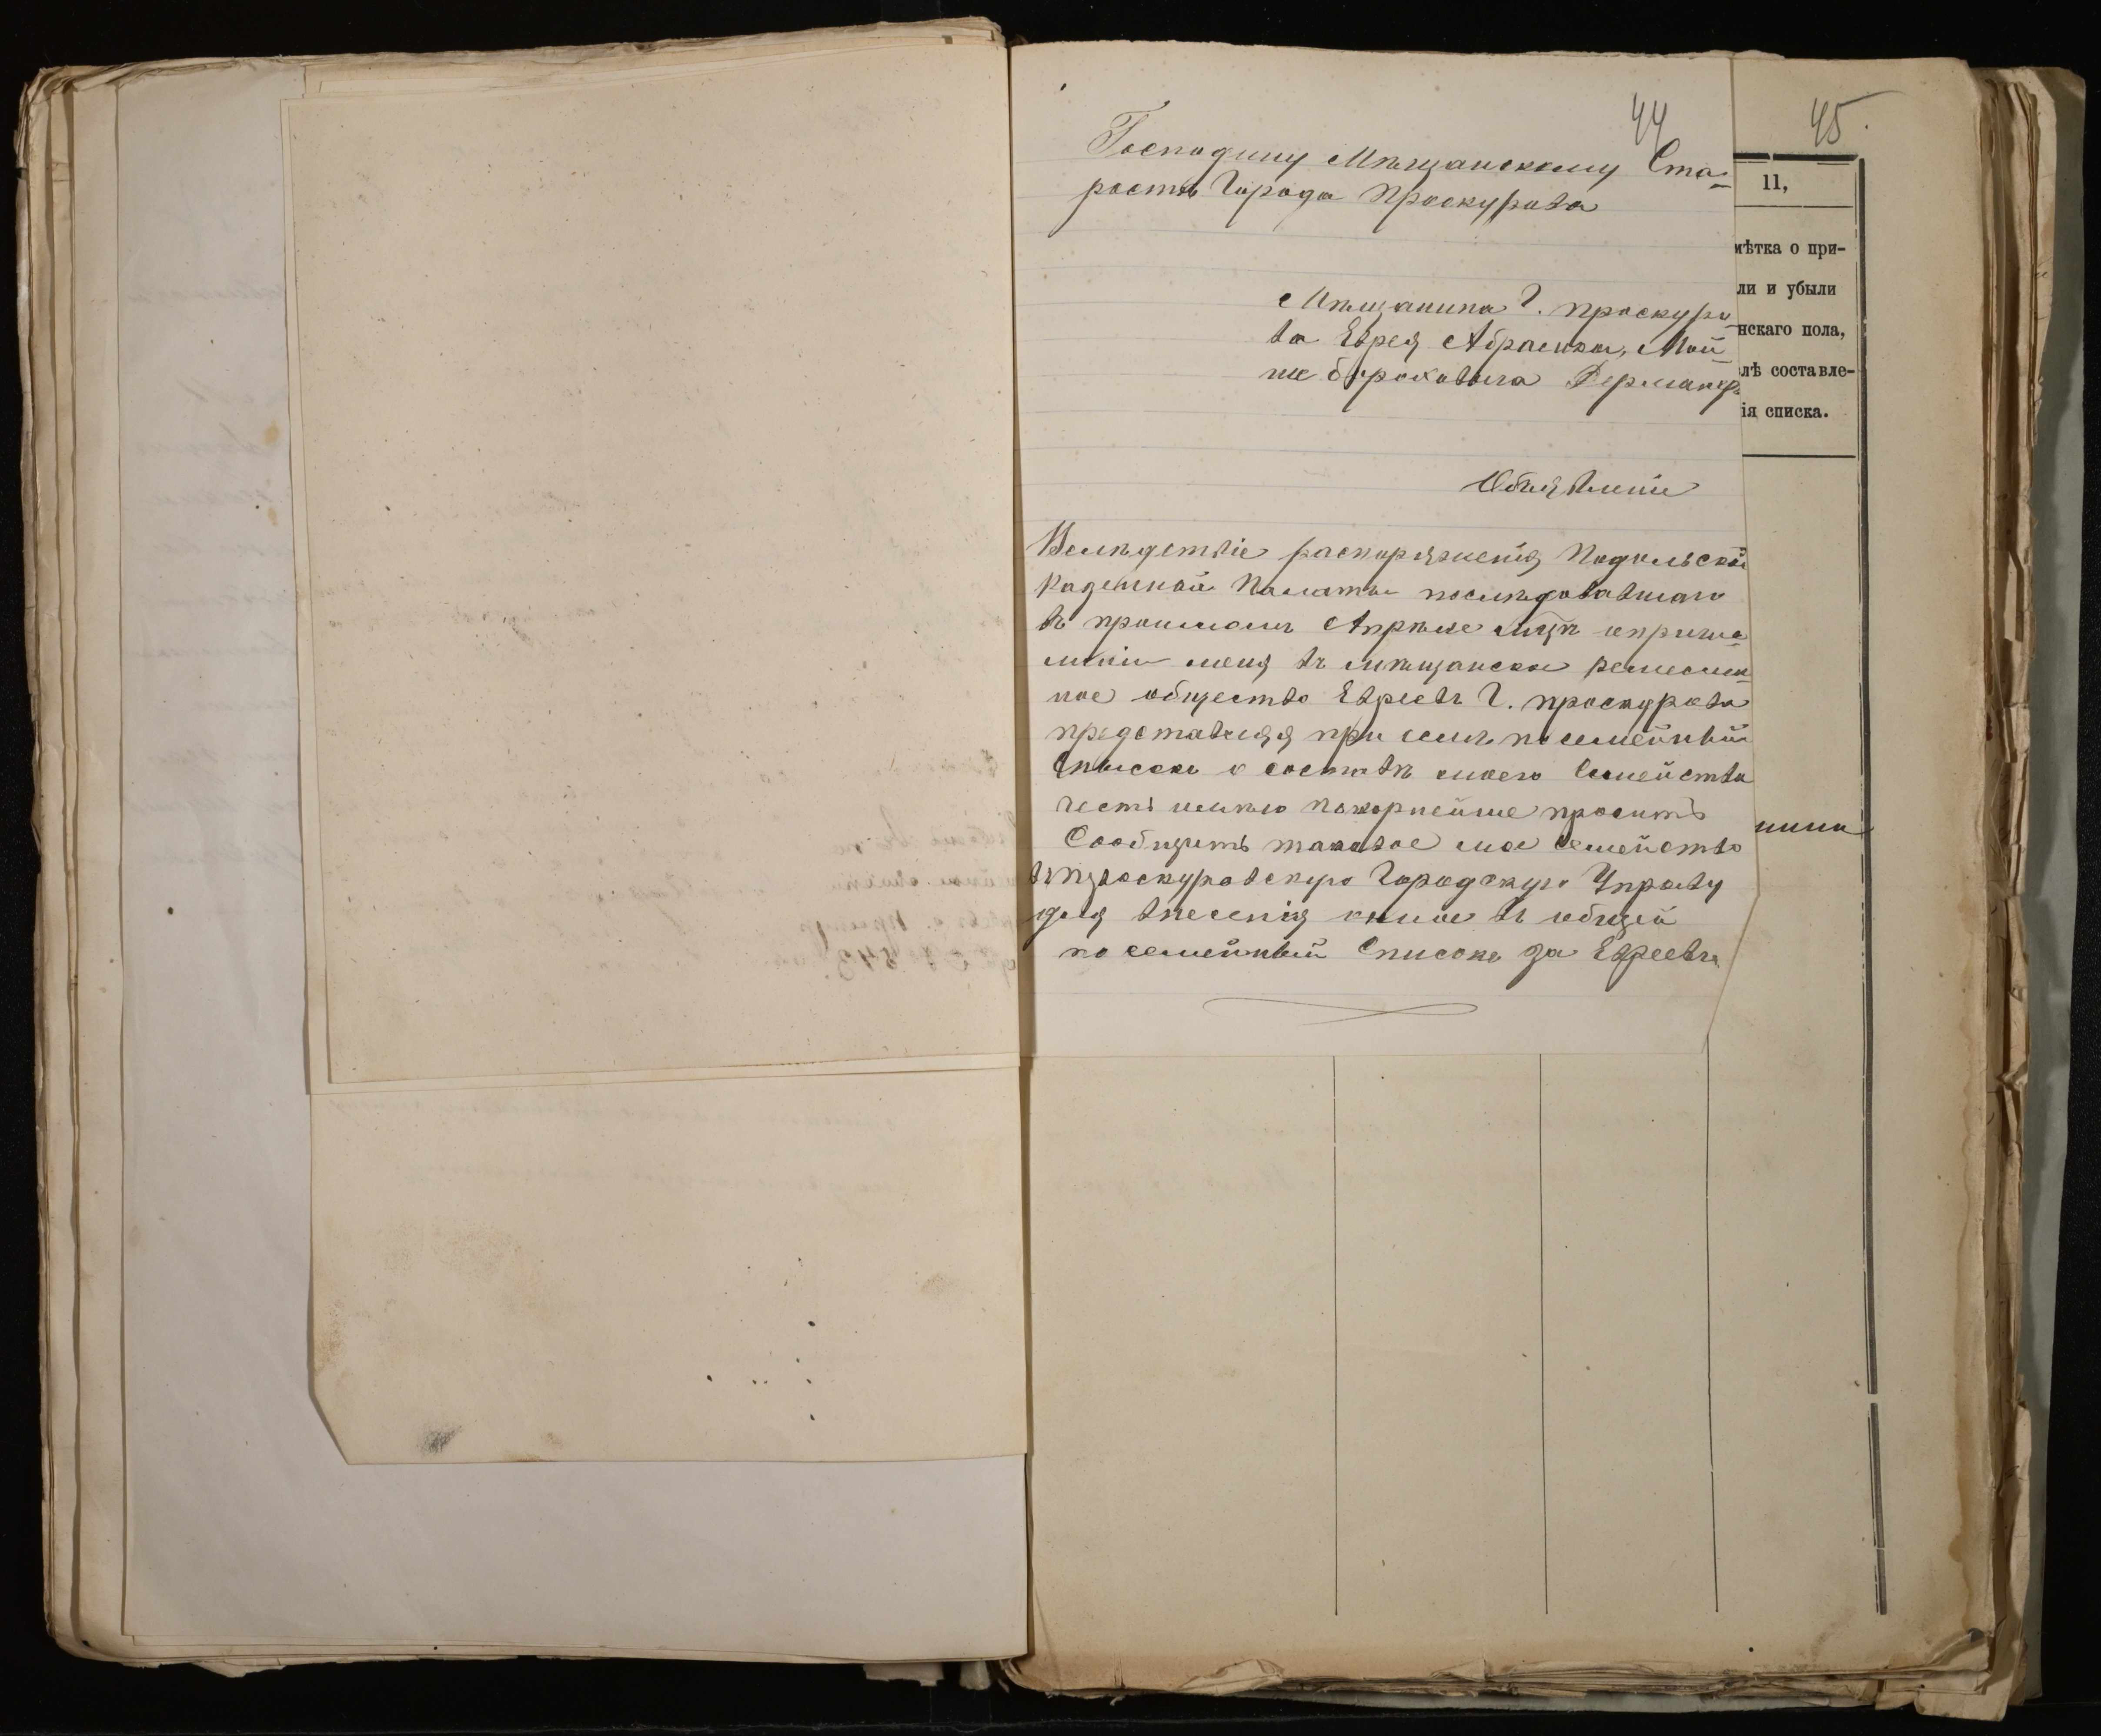 44
Господину Мѣщанскому Ста-
ростѣ Города Проскурова
Мѣщанина Г. проскуро-
ва Еврея Абрамка, Мой-
ше борохавыча Германа
Объявленіе
Вслѣдствіе распоряженія Подольской
Казенной Палаты послѣдовавшаго
въ прошломъ Апрѣле м-цѣ опричи-
сленіи меня въ мѣщанское ремеслен-
ное общество Евреевъ Г. проскурова
представляя при семъ посемейный
Списокъ о составѣ моего Семейства
честь имѣю покорнейше просить
Сообщить таковое мое семейство
въ проскуровскую Городскую Управу
для внесенія оное въ общей
посемейный Списокъ за Евреевъ
45
11,
мѣтка о при-
ли и убыли
нскаго пола,
лѣ составле-
ія списка.